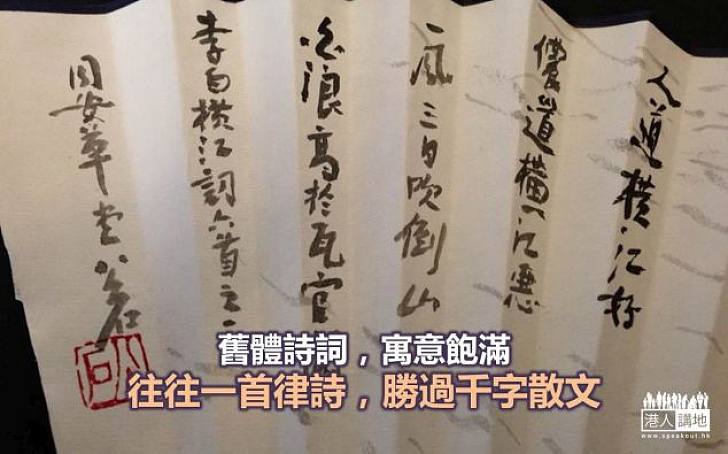 人道橫江好
儂道橫江惡
一風三日吹倒山
白浪高於瓦官
李白橫江詞六首之一
安草堂
舊體詩詞，寓意飽滿
往往一首律詩，勝過千字散文
港人講地
www.speakout.hk